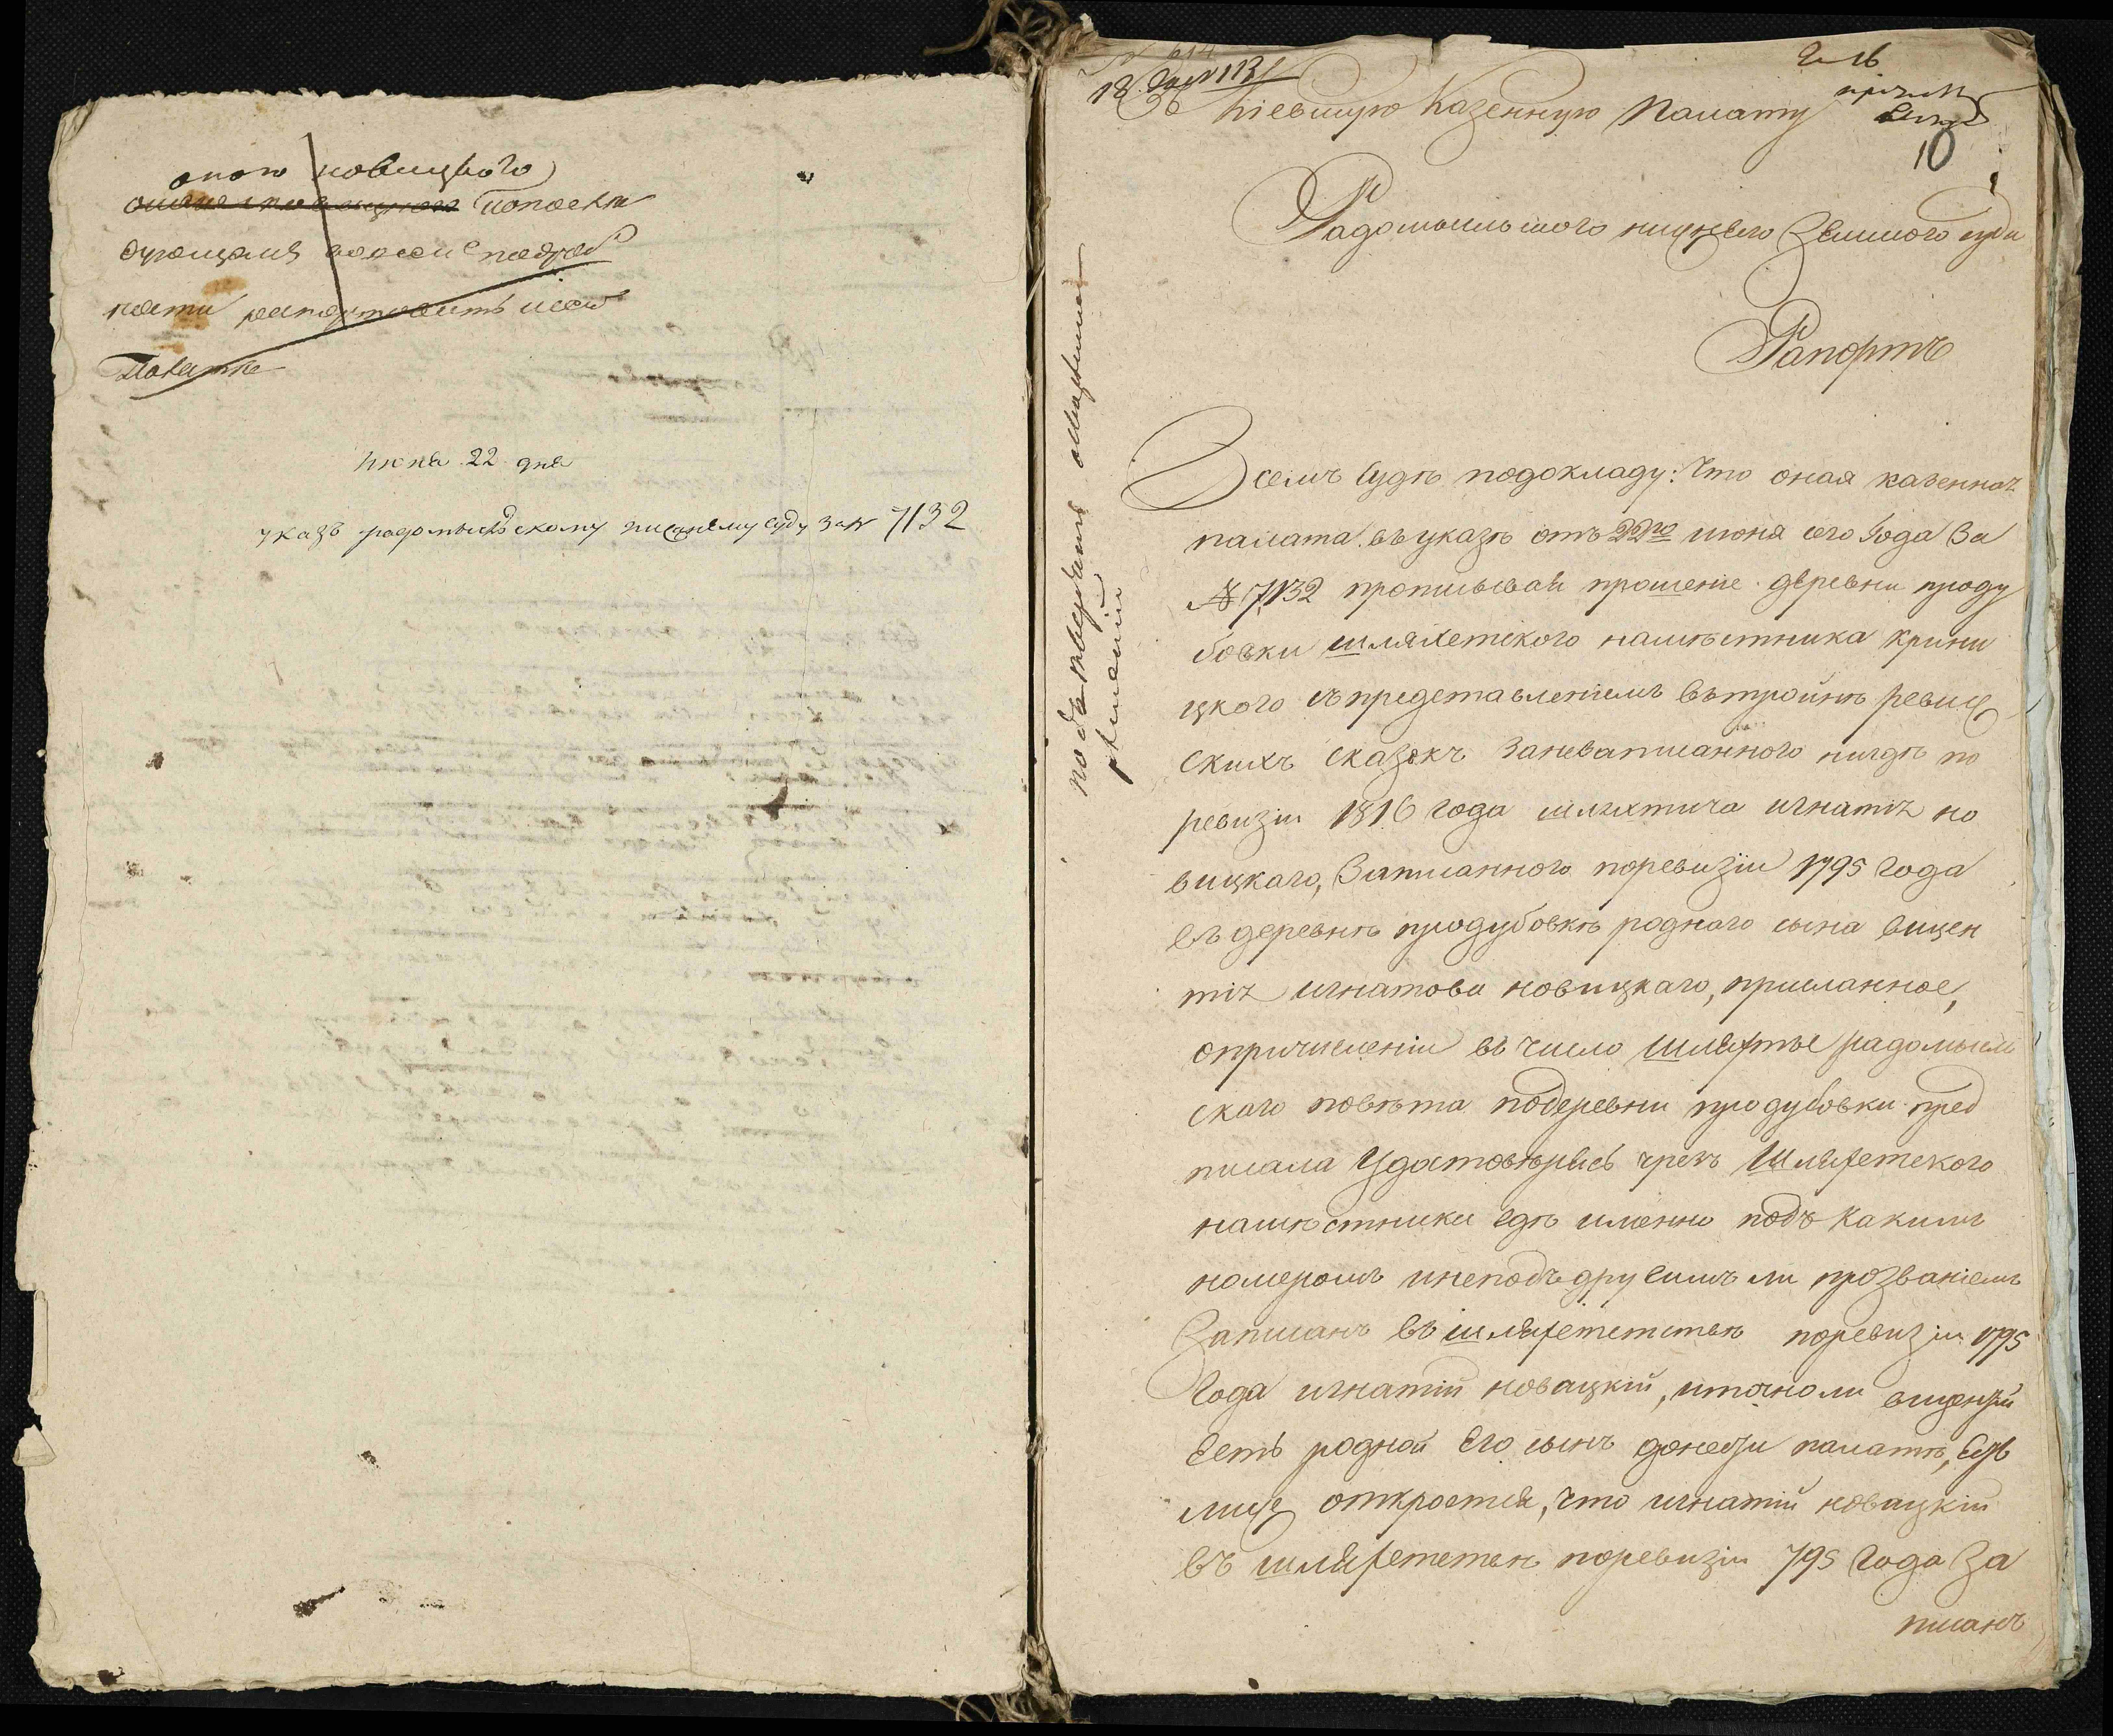 оного новицкого
июня 22 дня
указъ радомысльскому нижнему суду за № 7132
Въ Кіевскую Казенную Палату
10
Радомысльского нижнего Земского суда
Рапортъ
Въ семъ Судѣ по докладу: Что оная казенная
палата въ указѣ отъ 22го июня сего Года За
№ 7132 прописывая прошеніе деревни проду
бовки шляхетского намѣстника крини
цкого съ представленіемъ въ тройнѣ ревиж
скихъ сказокъ за незаписанного нигдѣ по
ревизіи 1816 года шляхтича игнатія но
вицкаго, Записанного по ревизіи 1795 Года
въ деревнѣ продубовкѣ роднаго сына викен
тія игнатова новицкаго, присланное,
о причисленіи въ число шляхты радомысль
скаго повѣта по деревни продубовки пред
писала Удостовѣрясь чрезъ Шляхетского
намѣстника Гдѣ именно подъ Какимъ
номеромъ и не подъ другимъ ли прозваніемъ
Записанъ въ шляхетствѣ по ревизіи 1795
Года игнатій новацкій, и точно ли викентій
Есть родной Его сынъ донести палатѣ, Еже
лиже откроется, Что игнатій новацкій
въ шляхетствѣ по ревизіи 795 Года За
писанъ